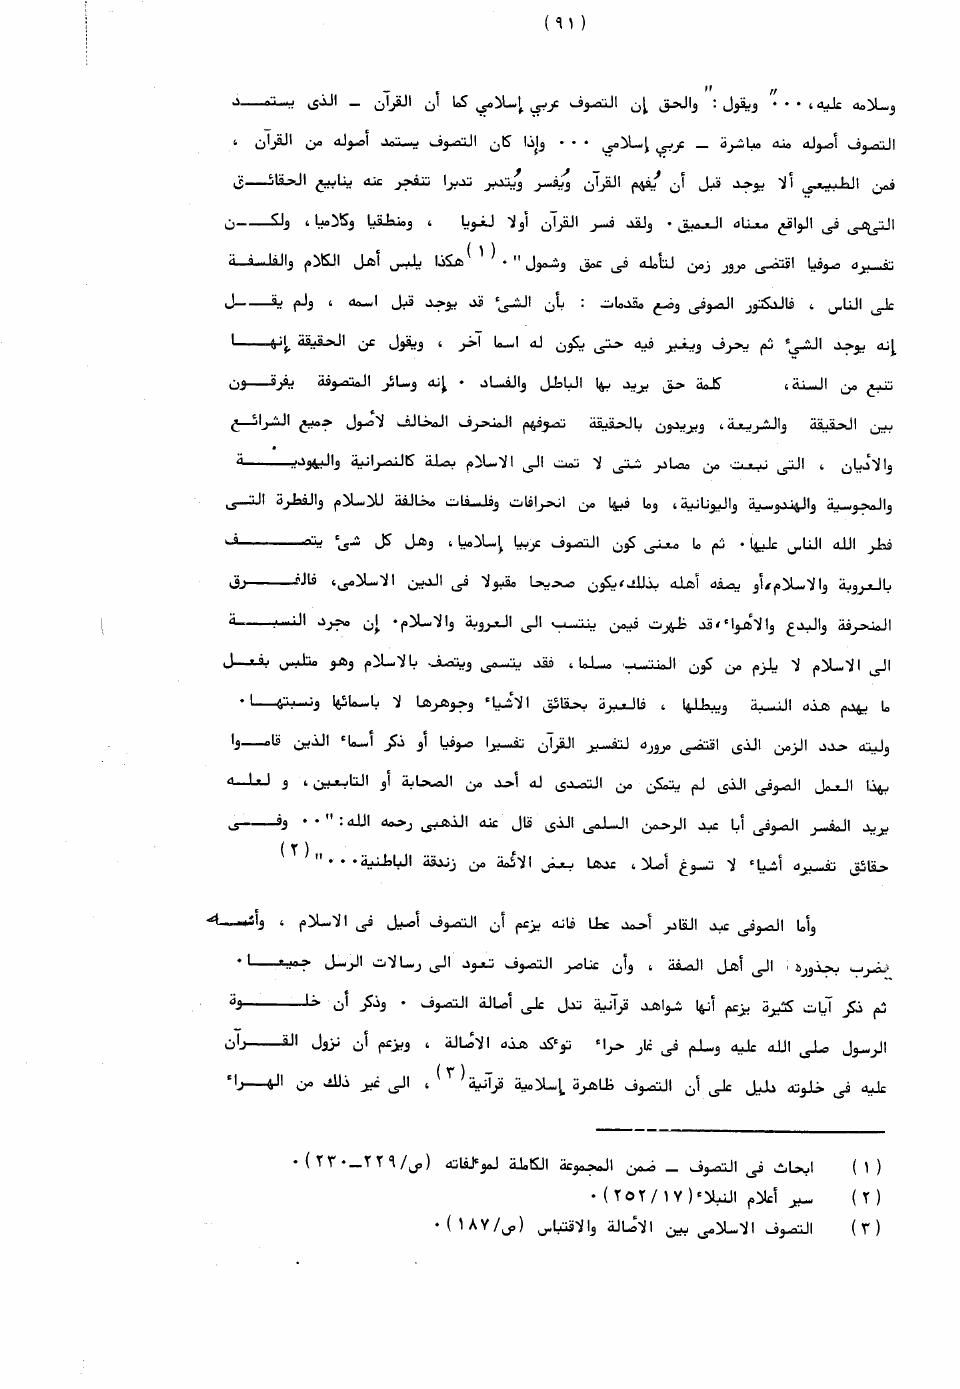 (٩١)
وسلامه عليه، ٠٠٠" ويقول : "والحق إن التصوف عربي إسلامي كما أن القرآن ــ الذى يستمد
التصوف أصوله منه مباشرة ــ عربي إسلامي ٠٠٠ وإذا كان التصوف يستمد أصوله من القرآن ،
فمن الطبيعي ألا يوجد قبل أن يُفهم القرآن ويُفسر ويُتدبر تدبرا تتفجر عنه ينابيع الحقائق
التي هى فى الواقع معناه العميق٠ ولقد فسر القرآن أولا لغويا ، ومنطقيا وكلاميا، ولكن
تفسيره صوفيا اقتضى مرور زمن لتأمله فى عمق وشمول"٠(١) هكذا يلبس أهل الكلام والفلسفة
على الناس ، فالدكتور الصوفى وضع مقدمات : بأن الشيء قد يوجد قبل اسمه ، ولم يقل
إنه يوجد الشيء ثم يحرف ويغير فيه حتى يكون له اسما آخر ، ويقول عن الحقيقة إنها
تنبع من السنة، كلمة حق يريد بها الباطل والفساد ٠ إنه وسائر المتصوفة يفرقون
بين الحقيقة والشريعة، ويريدون بالحقيقة تصوفهم المنحرف المخالف لأصول جميع الشرائع
والأديان ، التى نبعت من مصادر شتى لا تمت الى الاسلام بصلة كالنصرانية واليهودية
والمجوسية والهندوسية واليونانية، وما فيها من انحرافات وفلسفات مخالفة للاسلام والفطرة التى
فطر الله الناس عليها٠ ثم ما معنى كون التصوف عربيا إسلاميا، وهل كل شىء يتصف
بالعروبة والاسلام،أو يصفه أهله بذلك،يكون صحيحا مقبولا فى الدين الاسلامى، فالفرق
المنحرفة والبدع والأهواء،قد ظهرت فيمن ينتسب الى العروبة والاسلام٠ إن مجرد النسبة
الى الاسلام لا يلزم من كون المنتسب مسلما، فقد يتسمى ويتصف بالاسلام وهو متلبس بفعل
ما يهدم هذه النسبة ويبطلها ، فالعبرة بحقائق الأشياء وجوهرها لا باسمائها ونسبتها٠
وليته حدد الزمن الذى اقتضى مروره لتفسير القرآن تفسيرا صوفيا أو ذكر أسماء الذين قاموا
بهذا العمل الصوفى الذى لم يتمكن من التصدى له أحد من الصحابة أو التابعين، و لعله
يريد المفسر الصوفى أبا عبد الرحمن السلمى الذى قال عنه الذهبى رحمه الله:"٠٠ وفى
حقائق تفسيره أشياء لا تسوغ أصلا، عدها بعض الأئمة من زندقة الباطنية٠٠٠"(٢)
وأما الصوفى عبد القادر أحمد عطا فانه يزعم أن التصوف أصيل فى الاسلام ، وأنه
يضرب بجذوره الى أهل الصفة ، وأن عناصر التصوف تعود الى رسالات الرسل جميعا٠
ثم ذكر آيات كثيرة يزعم أنها شواهد قرآنية تدل على أصالة التصوف ٠ وذكر أن خلوة
الرسول صلى الله عليه وسلم فى غار حراء تؤكد هذه الأصالة ، ويزعم أن نزول القرآن
عليه فى خلوته دليل على أن التصوف ظاهرة إسلامية قرآنية(٣)، الى غير ذلك من الهراء
(١) ابحاث فى التصوف ــ ضمن المجموعة الكاملة لمؤلفاته (ص/٢٢٩ــ٢٣٠)٠
(٢) سير أعلام النبلاء(٢٥٢/١٧)٠
(٣) التصوف الاسلامى بين الأصالة والاقتباس (ص/١٨٧)٠